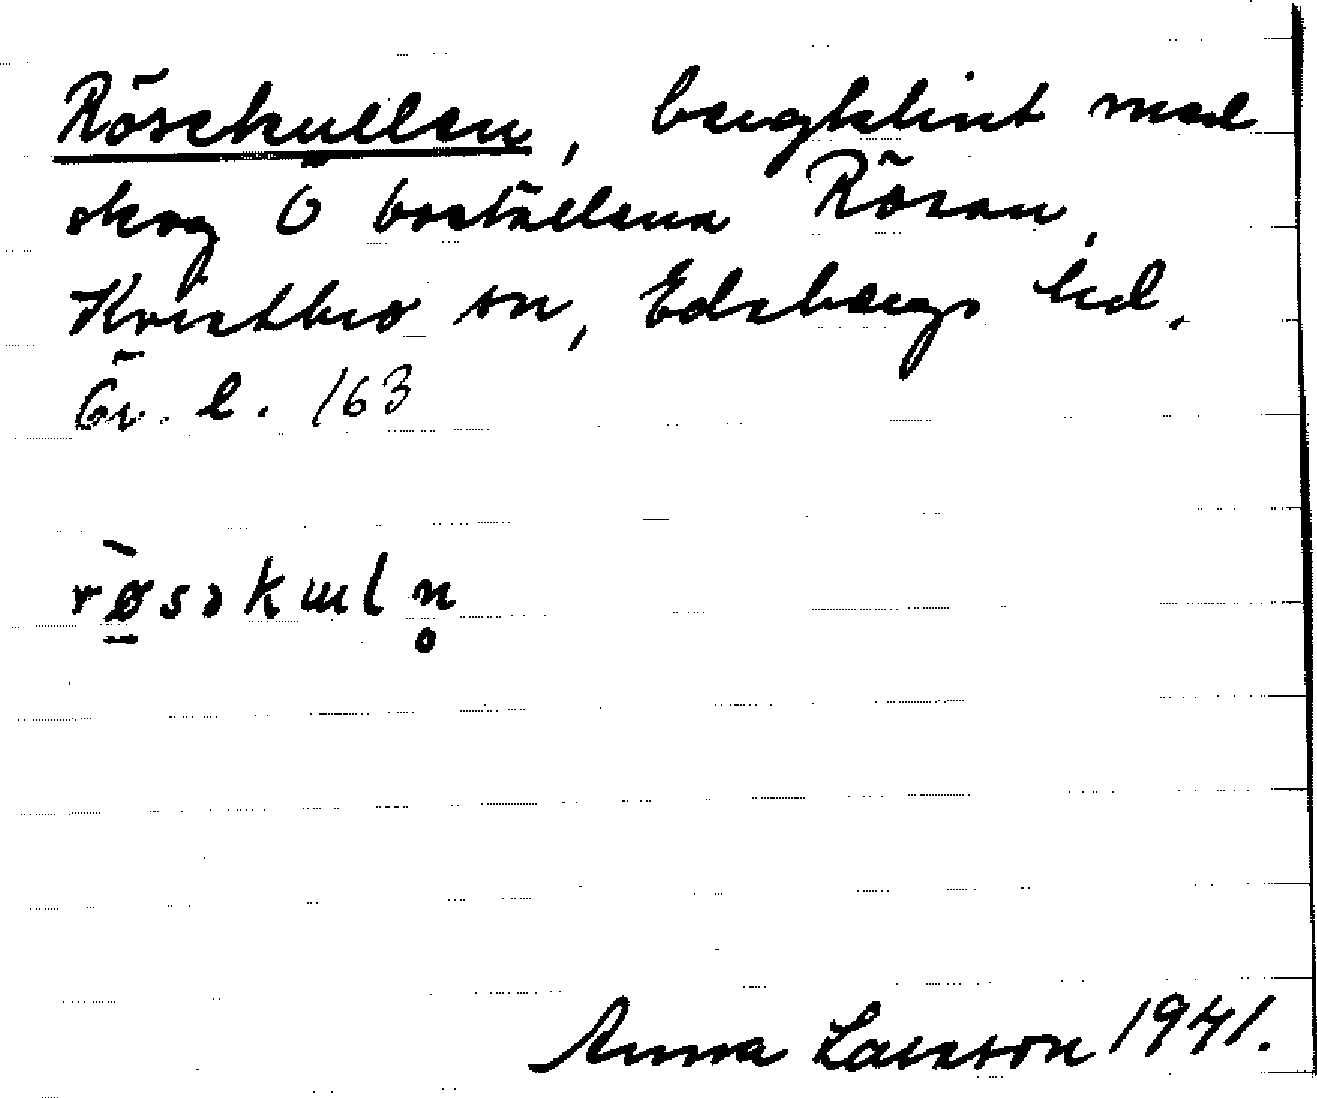 Rösekullen, bergklint med
skog Ö boställena Rösan,
Kvistbro sn, Edsbergs hd.
Ör. l. 163
rø̀səkɯln̥
Anna Larsson 1941.